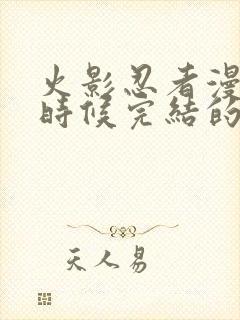 火影忍者漫
時候完結的
天人易